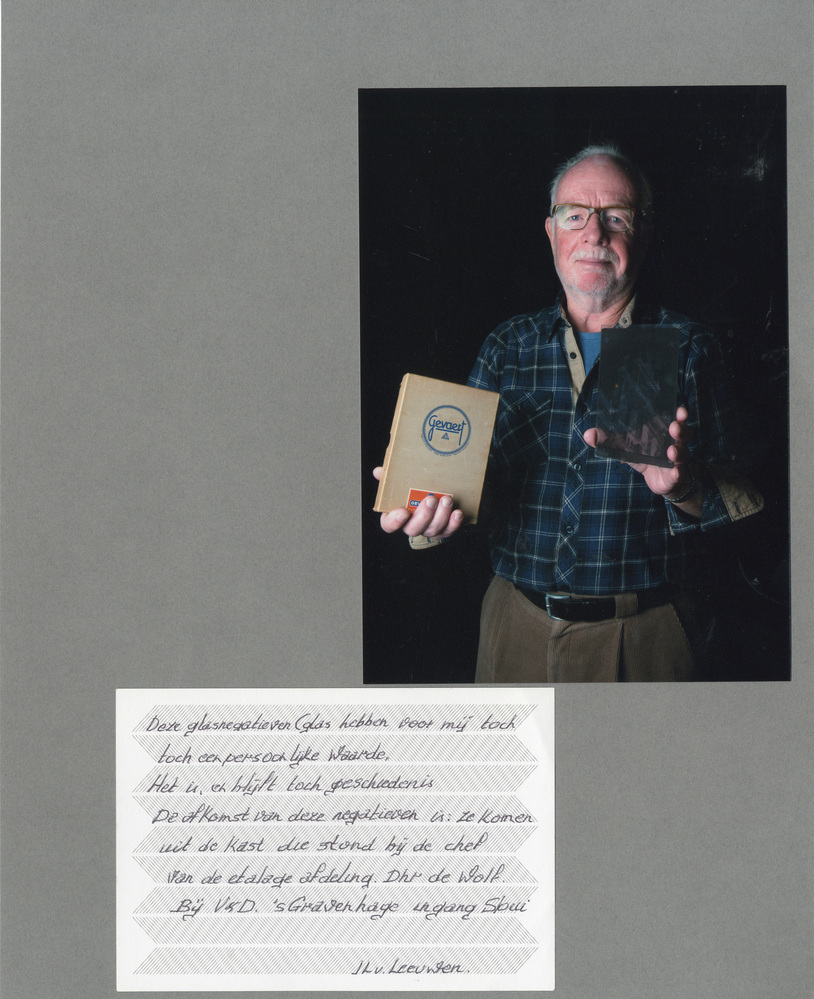 Gevaert
Deze glasnegatieven (glas hebben voor mij toch
toch een persoonlijke waarde.
Het is, en blijft toch geschiedenis
De afkomst van deze negatieven is: ze komen
uit de kast die stond bij de chef
van de etalage afdeling. Dhr de Wolf.
Bij V&D. 's Gravenhage ingang Spui
J.L.v. Leeuwen.